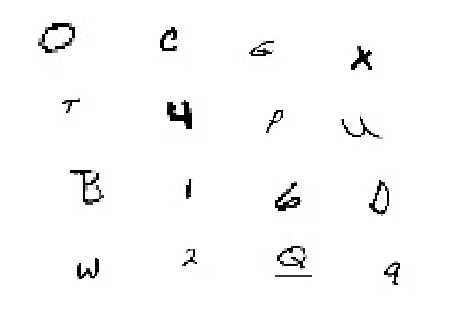 O C G X
T 4 P U
B 1 6 D
W 2 Q 9